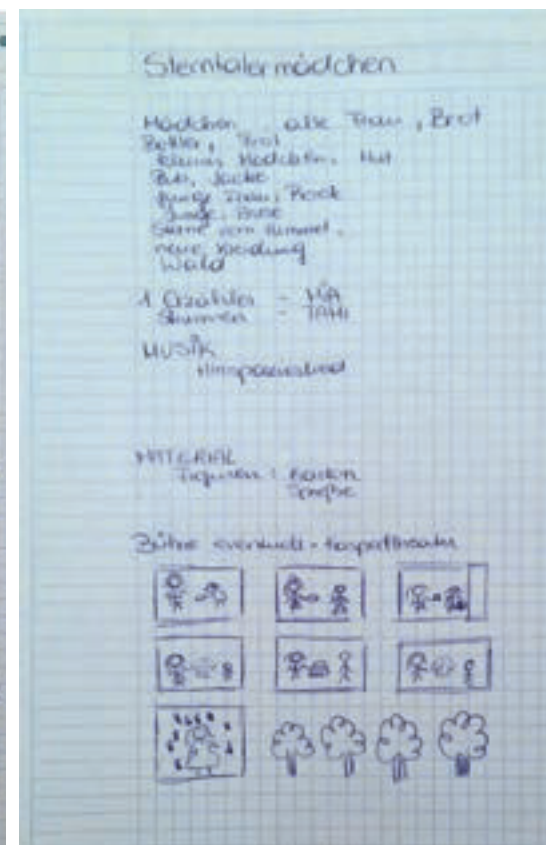 Sterntalermädchen
Mädchen, alte Frau, Brot
Bettler, Brot
kleines Mädchen, Hut
Bub, Jacke
junge Frau, Rock
Junge, Hose
Sterne vom Himmel,
neue Kleidung
Wald
1 Erzähler - MIA
Stimmen - TAMI
MUSIK
MATERIAL
Figuren: Karton
Stoffe
Bühne eventuell - Kasperltheater